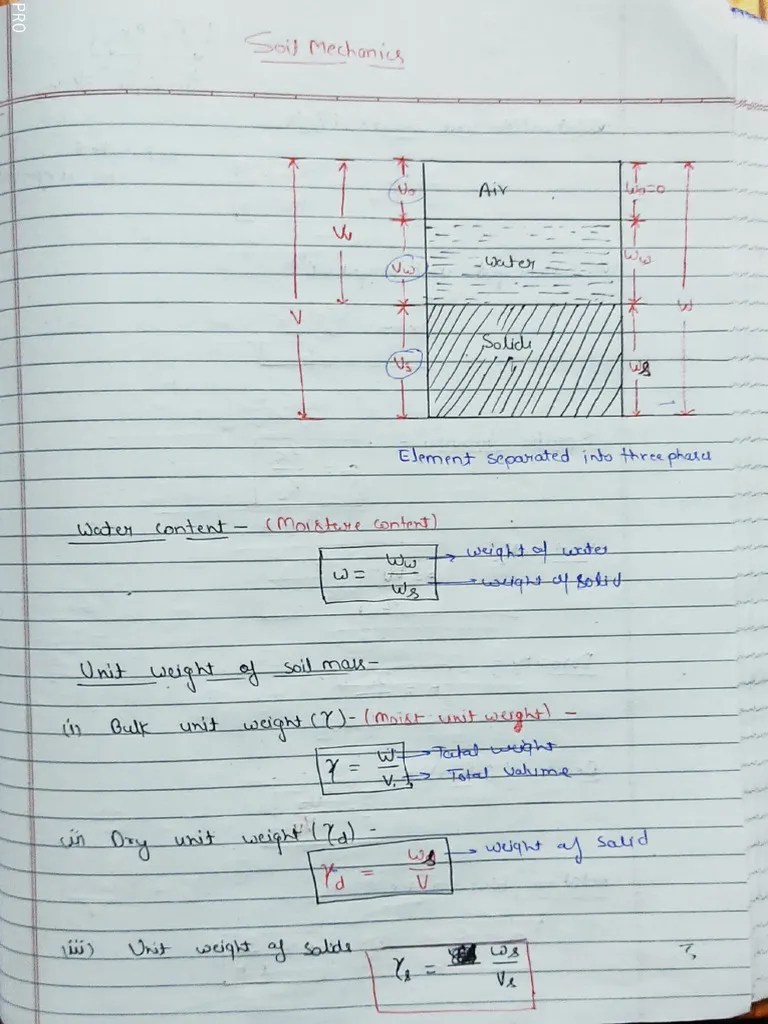 PRO
Soil Mechanics
Va Air Wa=0
Vv
Vw Water Ww
V W
Vs Solids Ws
Element separated into three phases
Water content - (Moisture content)
w = Ww/Ws → weight of water
→ weight of solid
Unit weight of soil mass -
(i) Bulk unit weight (γ) - (Moist unit weight) -
γ = W/V → Total weight
→ Total volume
(ii) Dry unit weight (γd) -
γd = Ws/V → weight of solid
(iii) Unit weight of solids γs = Ws/Vs